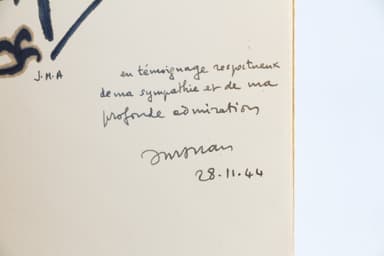 J.M.A
en témoignage respectueux
de ma sympathie et de ma
profonde admiration
28.11.44